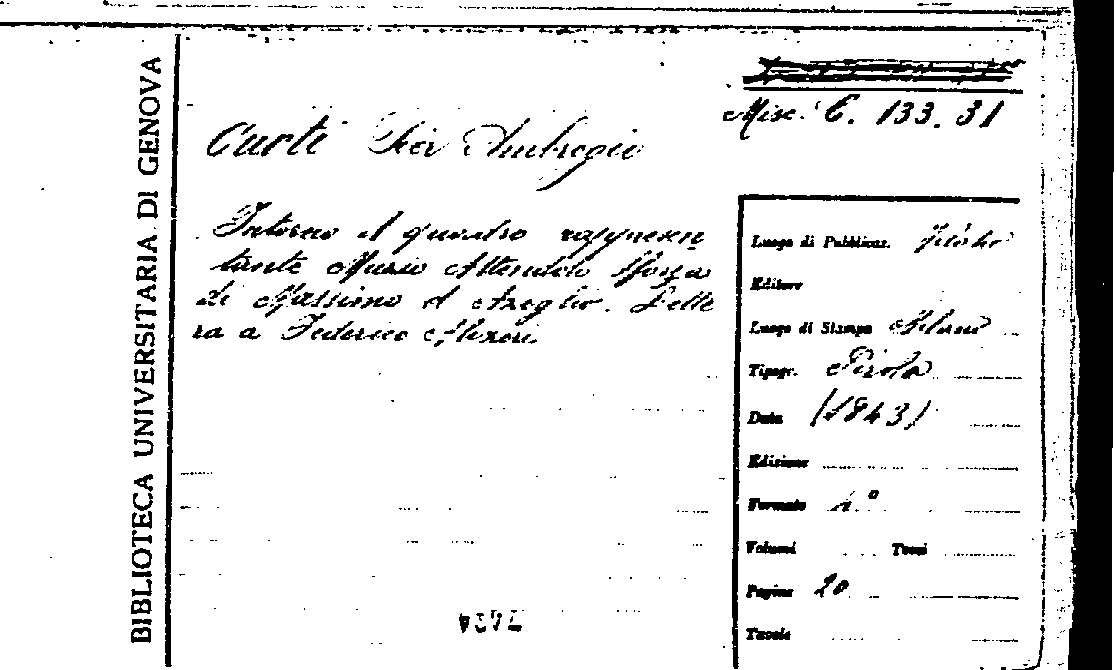 BIBLIOTECA UNIVERSITARIA DI GENOVA
Misc. E. 133.31
Curti Pier Ambrogio
Intorno il quadro rappresen
tante Muzio Attendolo Sforza
di Massimo d'Azeglio. Lette
ra a Federico
Luogo di Pubblicaz.
Editore
Luogo di Stampa Milano
Tipogr. Pirola
Data (1843)
Edizione
Formato 4.º
Volumi Tomi
Pagine 20
Tavole